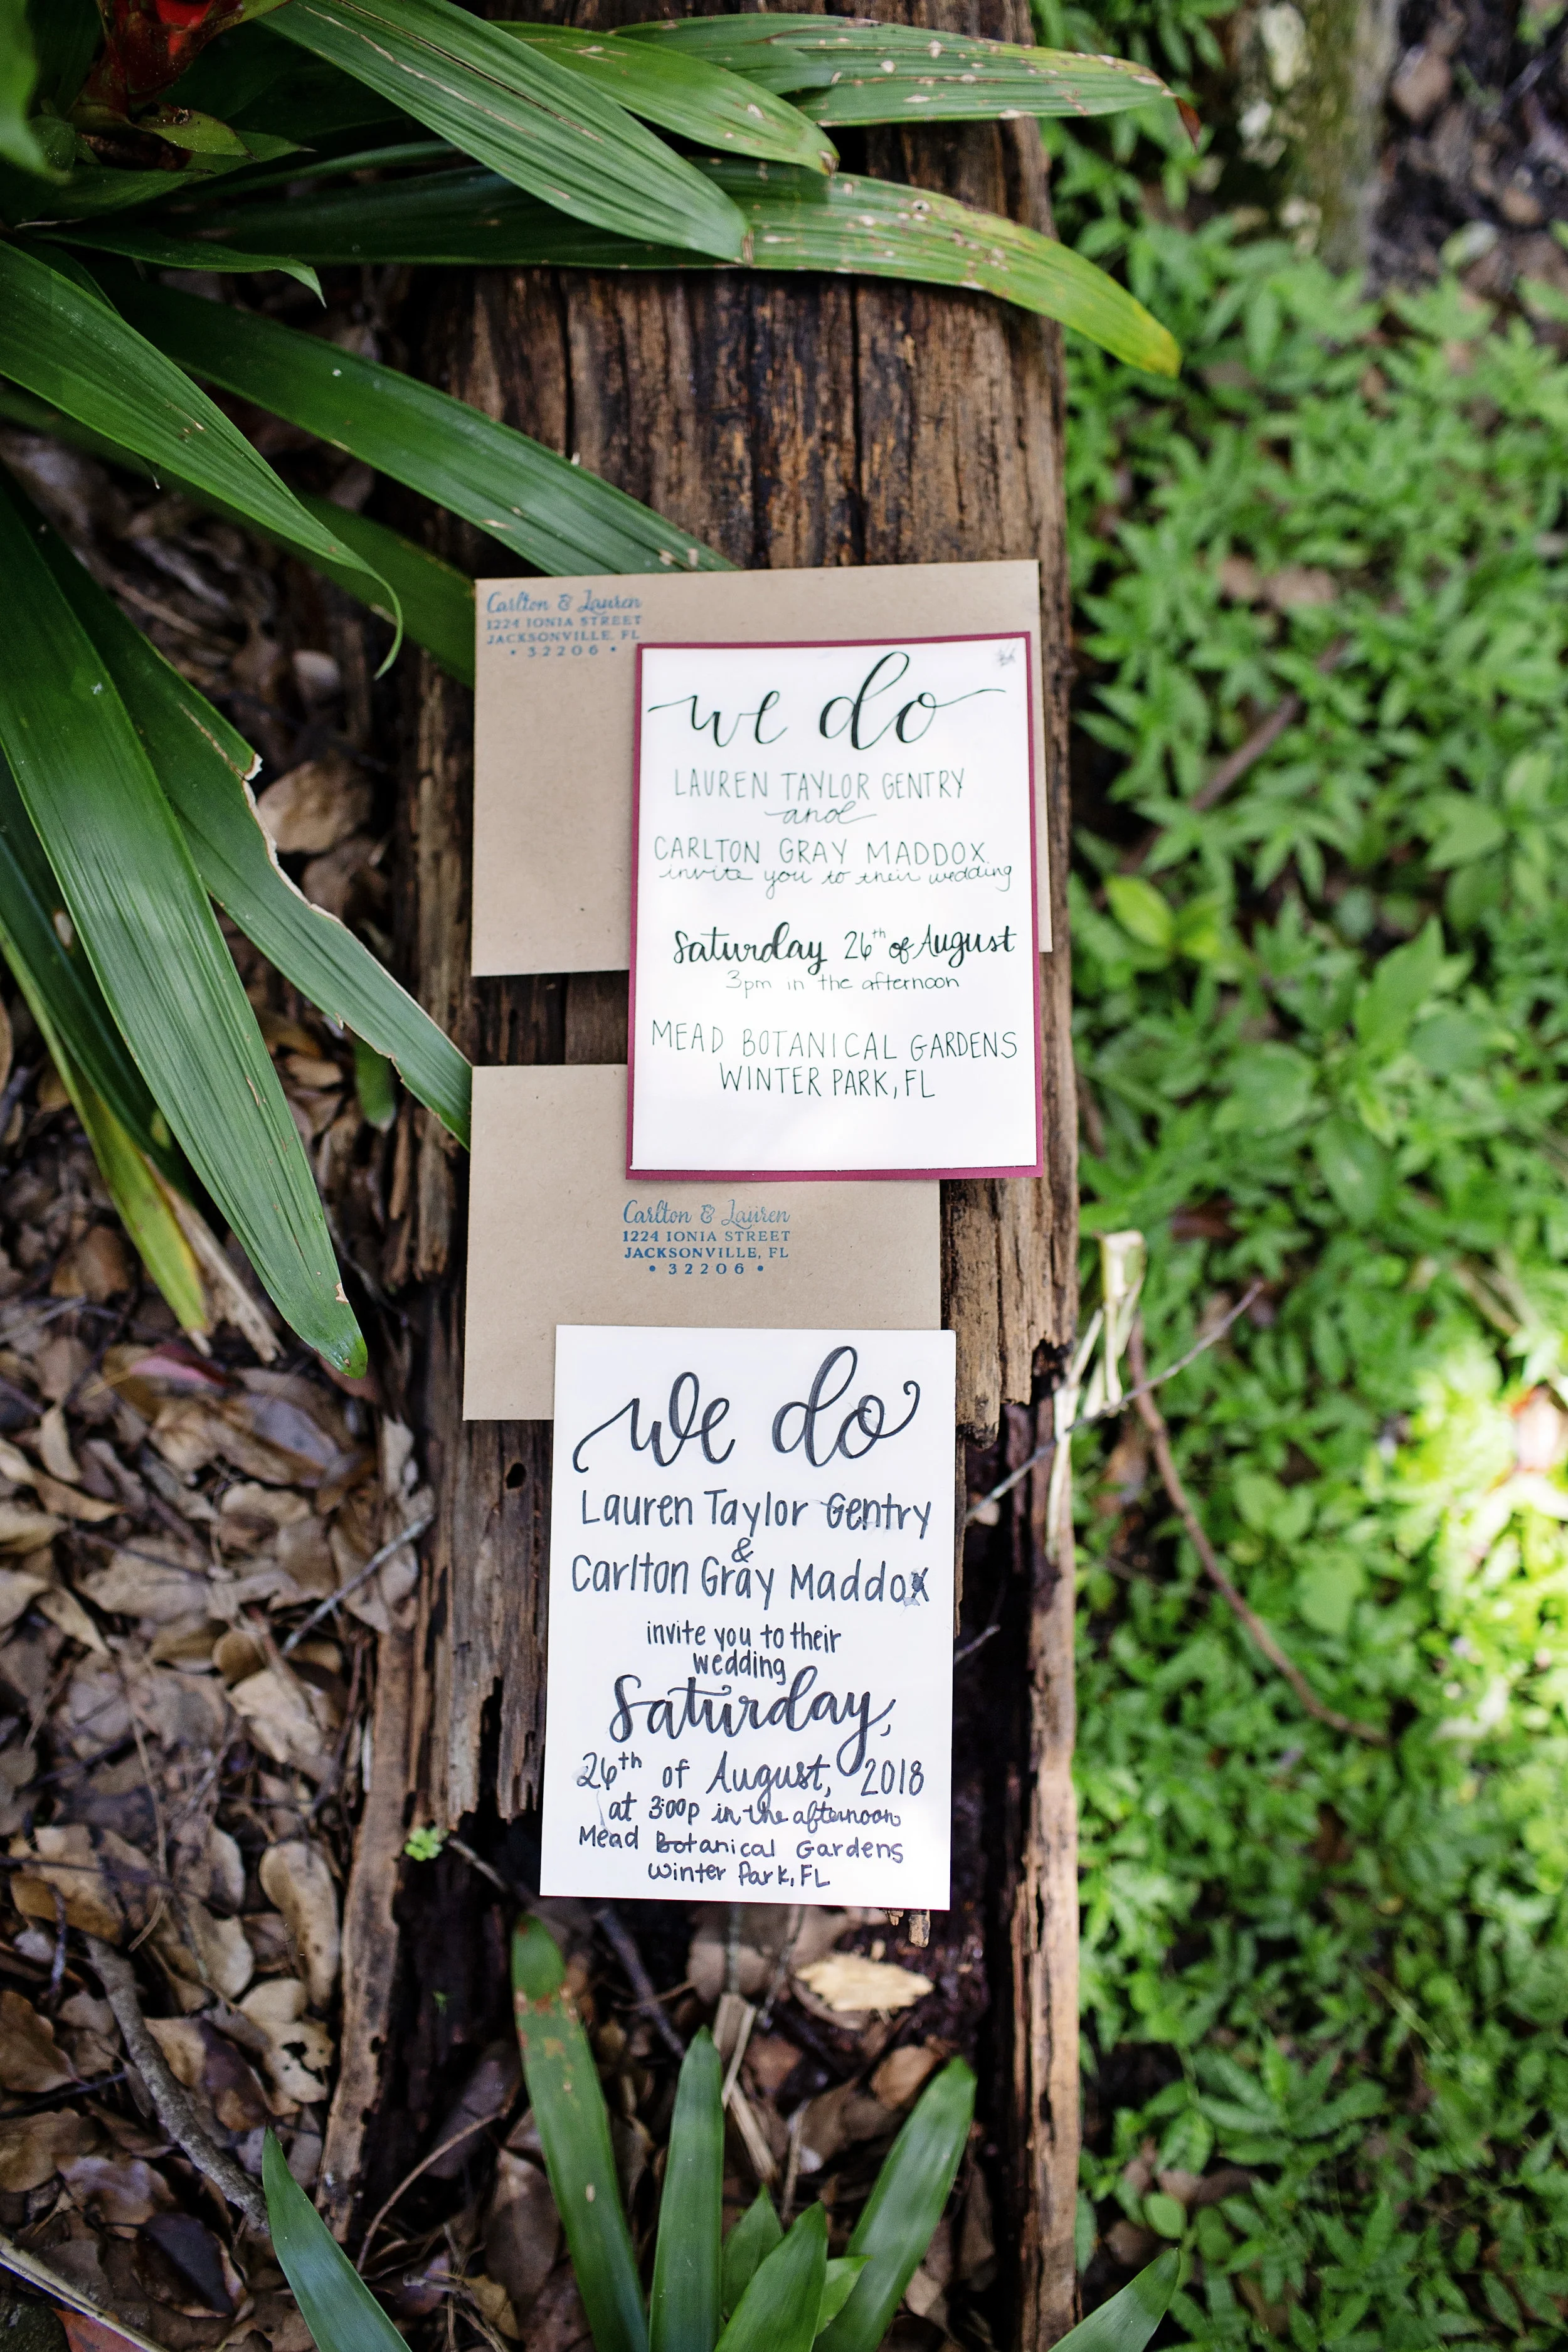 Carlton & Lauren
1224 IONIA STREET
JACKSONVILLE, FL
• 32206 •
we do
LAUREN TAYLOR GENTRY
and
CARLTON GRAY MADDOX
invite you to their wedding
Saturday 26th of August
3pm in the afternoon
MEAD BOTANICAL GARDENS
WINTER PARK, FL
Carlton & Lauren
1224 IONIA STREET
JACKSONVILLE, FL
• 32206 •
we do
Lauren Taylor Gentry
&
Carlton Gray Maddox
invite you to their
wedding
Saturday,
26th of August, 2018
at 3:00p in the afternoon
Mead Botanical Gardens
Winter Park, FL